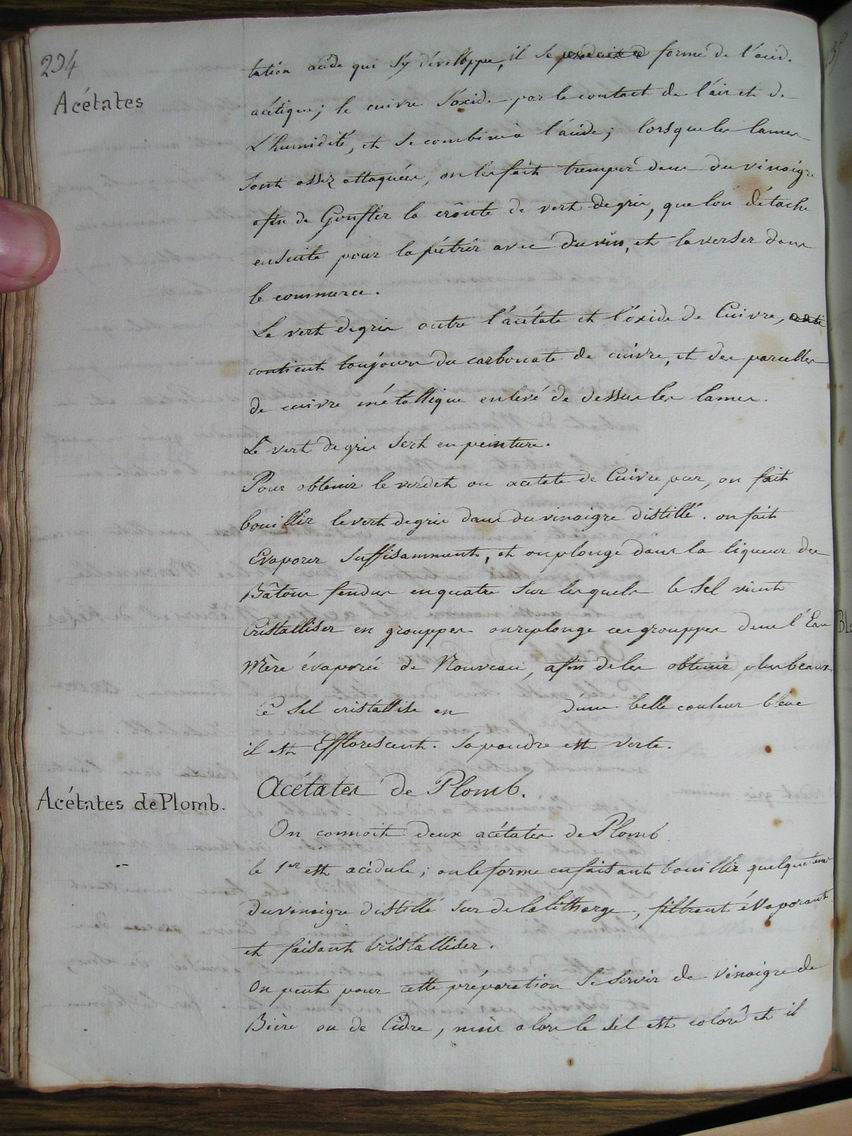 234
Acétates
tation acide qui s'y développe, il se forme de l'acid.
acétique; le cuivre s'oxide par le contact de l'air et de
L'humidité, et se combine à l'acide; lorsque les lames
sont assez attaquées, on les fait tremper dans du vinaigre
afin de Gonfler la croûte de vert de gris, que l'on détache
ensuite pour la pétrir avec du vin, et la verser dans
le commerce.
Le vert de gris outre l'acétate et l'oxide de Cuivre,
contient toujours du carbonate de cuivre, et des parcelles
de cuivre métallique enlevé de dessus les lames.
Le vert de gris sert en peinture.
Pour obtenir le verdet ou acetate de Cuivre pur, on fait
bouillir le vert de gris dans du vinaigre distillé. on fait
Evaporer suffisamment, et on plonge dans la liqueur des
Bâtons fendus en quatre sur lesquels le sel vient
Cristalliser en grouppes. on replonge ces grouppes dans l'Eau
Mère évaporée de Nouveau, afin de les obtenir plus beaux.
Ce Sel cristallise en d'une belle couleur bleue
il est Efflorescent. Sa poudre est verte.
Acétates de Plomb.
Acétates de Plomb.
On connoit deux acétates de Plomb.
le 1er est acidule; on le forme en faisant bouillir quelque tems
du vinaigre distillé sur de la litharge, filtrant évaporant
et faisant cristalliser.
On peut pour cette préparation se servir de vinaigre de
Bière ou de Cidre, mais alors le sel est coloré et il